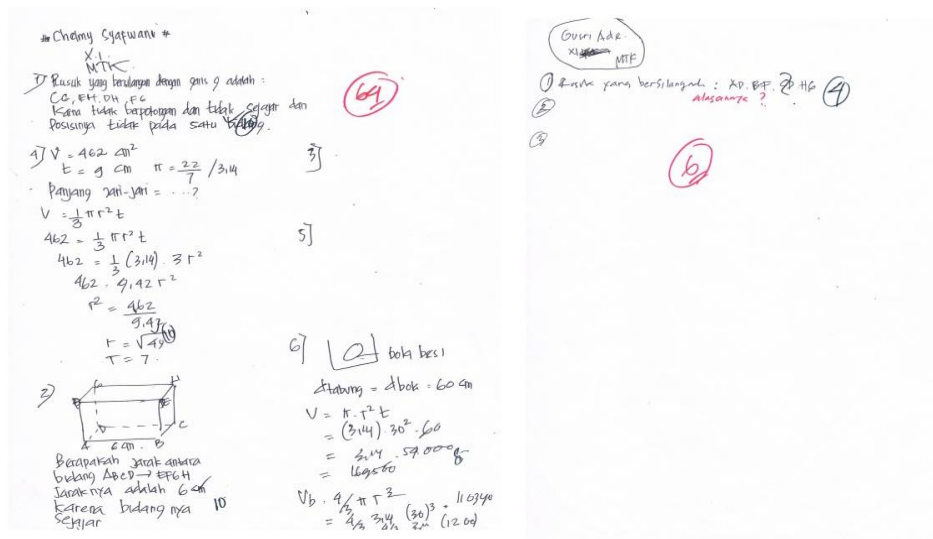 * Chelmy Syafwani *
XI.
MTK
1) Rusuk yang berulangan dengan garis g adalah :
CG, EH, DH, FG
Karna tidak berpotongan dan tidak sejajar dan
Posisinya tidak pada satu bidang.
64
4] V = 462 cm²
t = 9 cm π = 22/7 / 3,14
Panjang jari-jari = ....?
V = 1/3 π r² t
462 = 1/3 π r² t
462 = 1/3 (3,14) . 3 r²
462 . 9,42 r²
r² = 462 / 9,42
r = √49
r = 7.
2)
H
E
D
C
A 6 cm. B
Berapakah jarak antara
bidang ABCD → EFGH
Jaraknya adalah 6 cm
Karena bidang nya 10
Sejajar
3]
5]
6] bola besi
d tabung = d bola = 60 cm
V = π . r² t
= (3,14) . 30² . 60
= 3,14 . 54000
= 169560
Vb . 4/3 π r³
= 4/3 3,14 (30)³
Gusri Ade.
XI
MTF
① Rusuk yang bersilangan : AD. BF. HG ④
alasannya ?
②
③
6